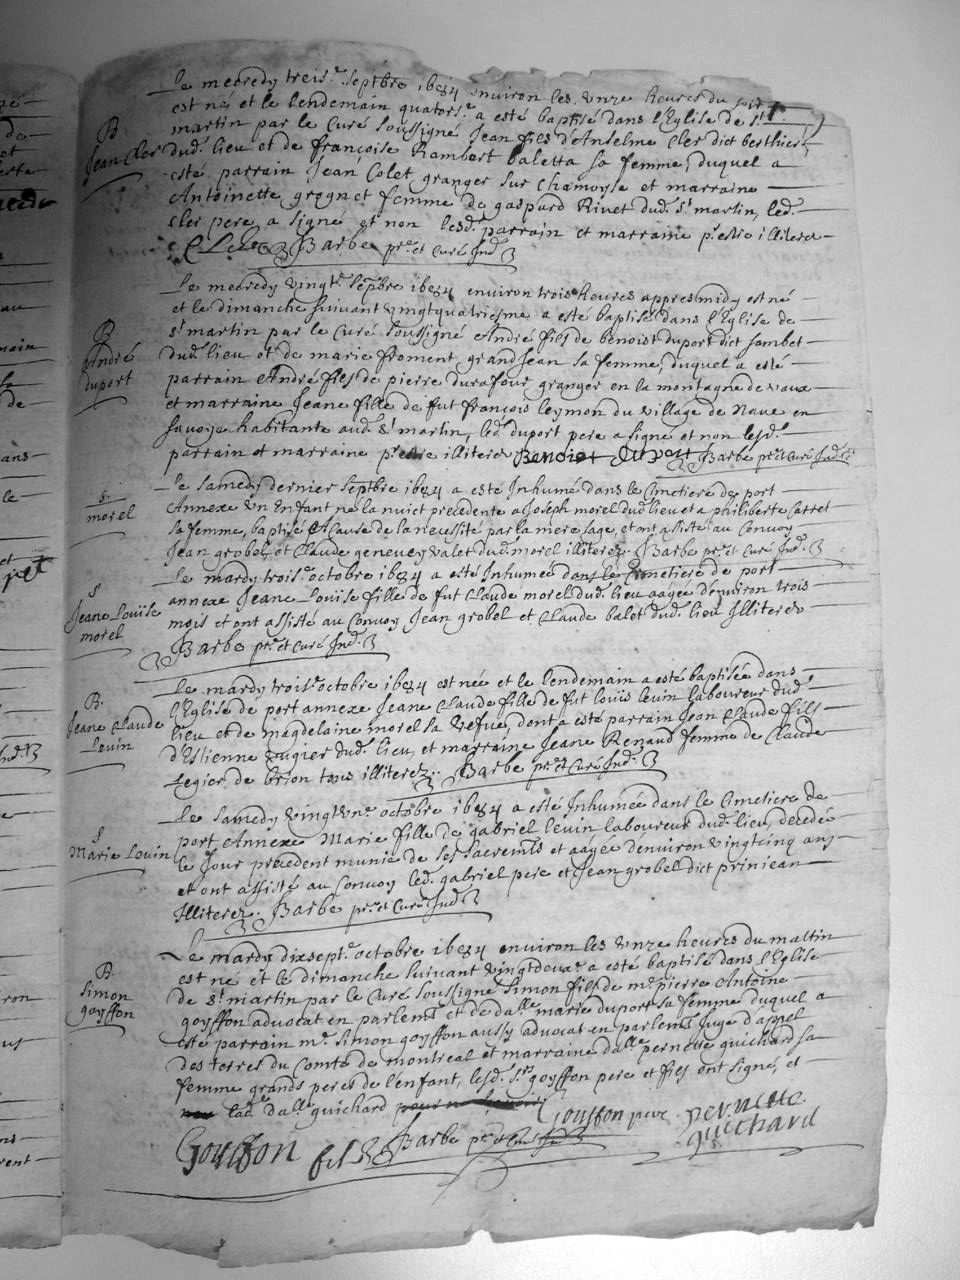 Le mecredy treis.e septbre 1684 environ les unze heures du soir
est né et le lendemain quators.e a esté baptisé dans l'Eglise de St
martin par le Curé soussigné Jean fils d'Anselme Cler dict berthier
B
Jean Cler
dud. lieu et de françoise Rambert baletta sa femme, duquel a
esté parrain Jean Colet granger sur Chamoyse et marraine
Antoinette grognet femme de gaspard Rivet dud. st martin, led.
Cler pere a signé et non lesd. parrain et marraine p.r estre illiteres
C Cler Barbe p.re et Curé Ind.
Le mecredy vingt.e septbre 1684 environ trois heures appres midy est né
et le dimanche suivant vingtquatriesme a esté baptisé dans l'Eglise de
B
André
duport
st martin par le Curé soussigné André fils de benoist duport dict jombet
dud. lieu et de marie froment grandjean sa femme, duquel a esté
parrain André fils de pierre durafour granger en la montagne de vaux
et marraine Jeane fille de fut françois leymon du village de Nave en
savoye habitante aud. st martin, led. duport pere a signé et non lesd.
parrain et marraine p.r estre illiteres Benoist duport Barbe p.re et Curé Ind.
S
morel
Le samedy dernier septbre 1684 a esté Inhumé dans le Cimetiere de port
Annexe un Enfant né la nuict precedente a Joseph morel dud. lieu et a philiberte Carret
sa femme, baptisé A Cause de la necessité par la mere sage, et ont assisté au Convoy
Jean grobel et Claude genevey valet dud. morel illiteres. Barbe p.re et Curé Ind.
S
Jeane Louise
morel
Le mardy trois.e octobre 1684 a esté Inhumée dans le Cimetiere de port
annexe Jeane Louise fille de fut Claude morel dud. lieu aagée d'environ trois
mois et ont assisté au Convoy Jean grobel et Claude balet dud. lieu Illiteres
Barbe p.re et Curé Ind.
B.
Jeane Claude
Levin
Le mardy trois.e octobre 1684 est née et le lendemain a esté baptisée dans
l'Eglise de port annexe Jeane Claude fille de fut louis levin laboureur dud.
lieu et de magdelaine morel sa vefue, dont a esté parrain Jean Claude fils
d'Estienne augier dud. lieu, et marraine Jeane Renaud femme de Claude
Legier de brion tous illiterez. Barbe p.re et Curé Ind.
S
Marie Levin
Le samedy vingtun.e octobre 1684 a esté Inhumée dans le Cimetiere de
port Annexe Marie fille de gabriel levin laboureur dud. lieu, decedée
le jour precedent munie de ses sacremts et aagée denviron vingtcinq ans
et ont assisté au Convoy led. gabriel pere et Jean grobel dict prinjean
Illiterez. Barbe p.re et Curé Ind.
B.
simon
goyffon
Le mardy dixsept.e octobre 1684 environ les unze heures du mattin
est né et le dimanche suivant vingtdeux.e a esté baptisé dans l'Eglise
de st martin par le Curé soussigné simon fils de m.e pierre Antoine
goyffon advocat en parlemt et de da.lle marie duport sa femme duquel a
esté parrain m.e simon goyffon aussy advocat en parlemt Juge d'appel
des terres du Comté de montreal et marraine da.lle pernette guichard sa
femme grands peres de l'enfant, lesd. s.rs goyffon pere et fils ont signé, et
lad. da.lle guichard Goyffon pere pernette
guichard
Goyffon fils Barbe p.re et Curé Ind.